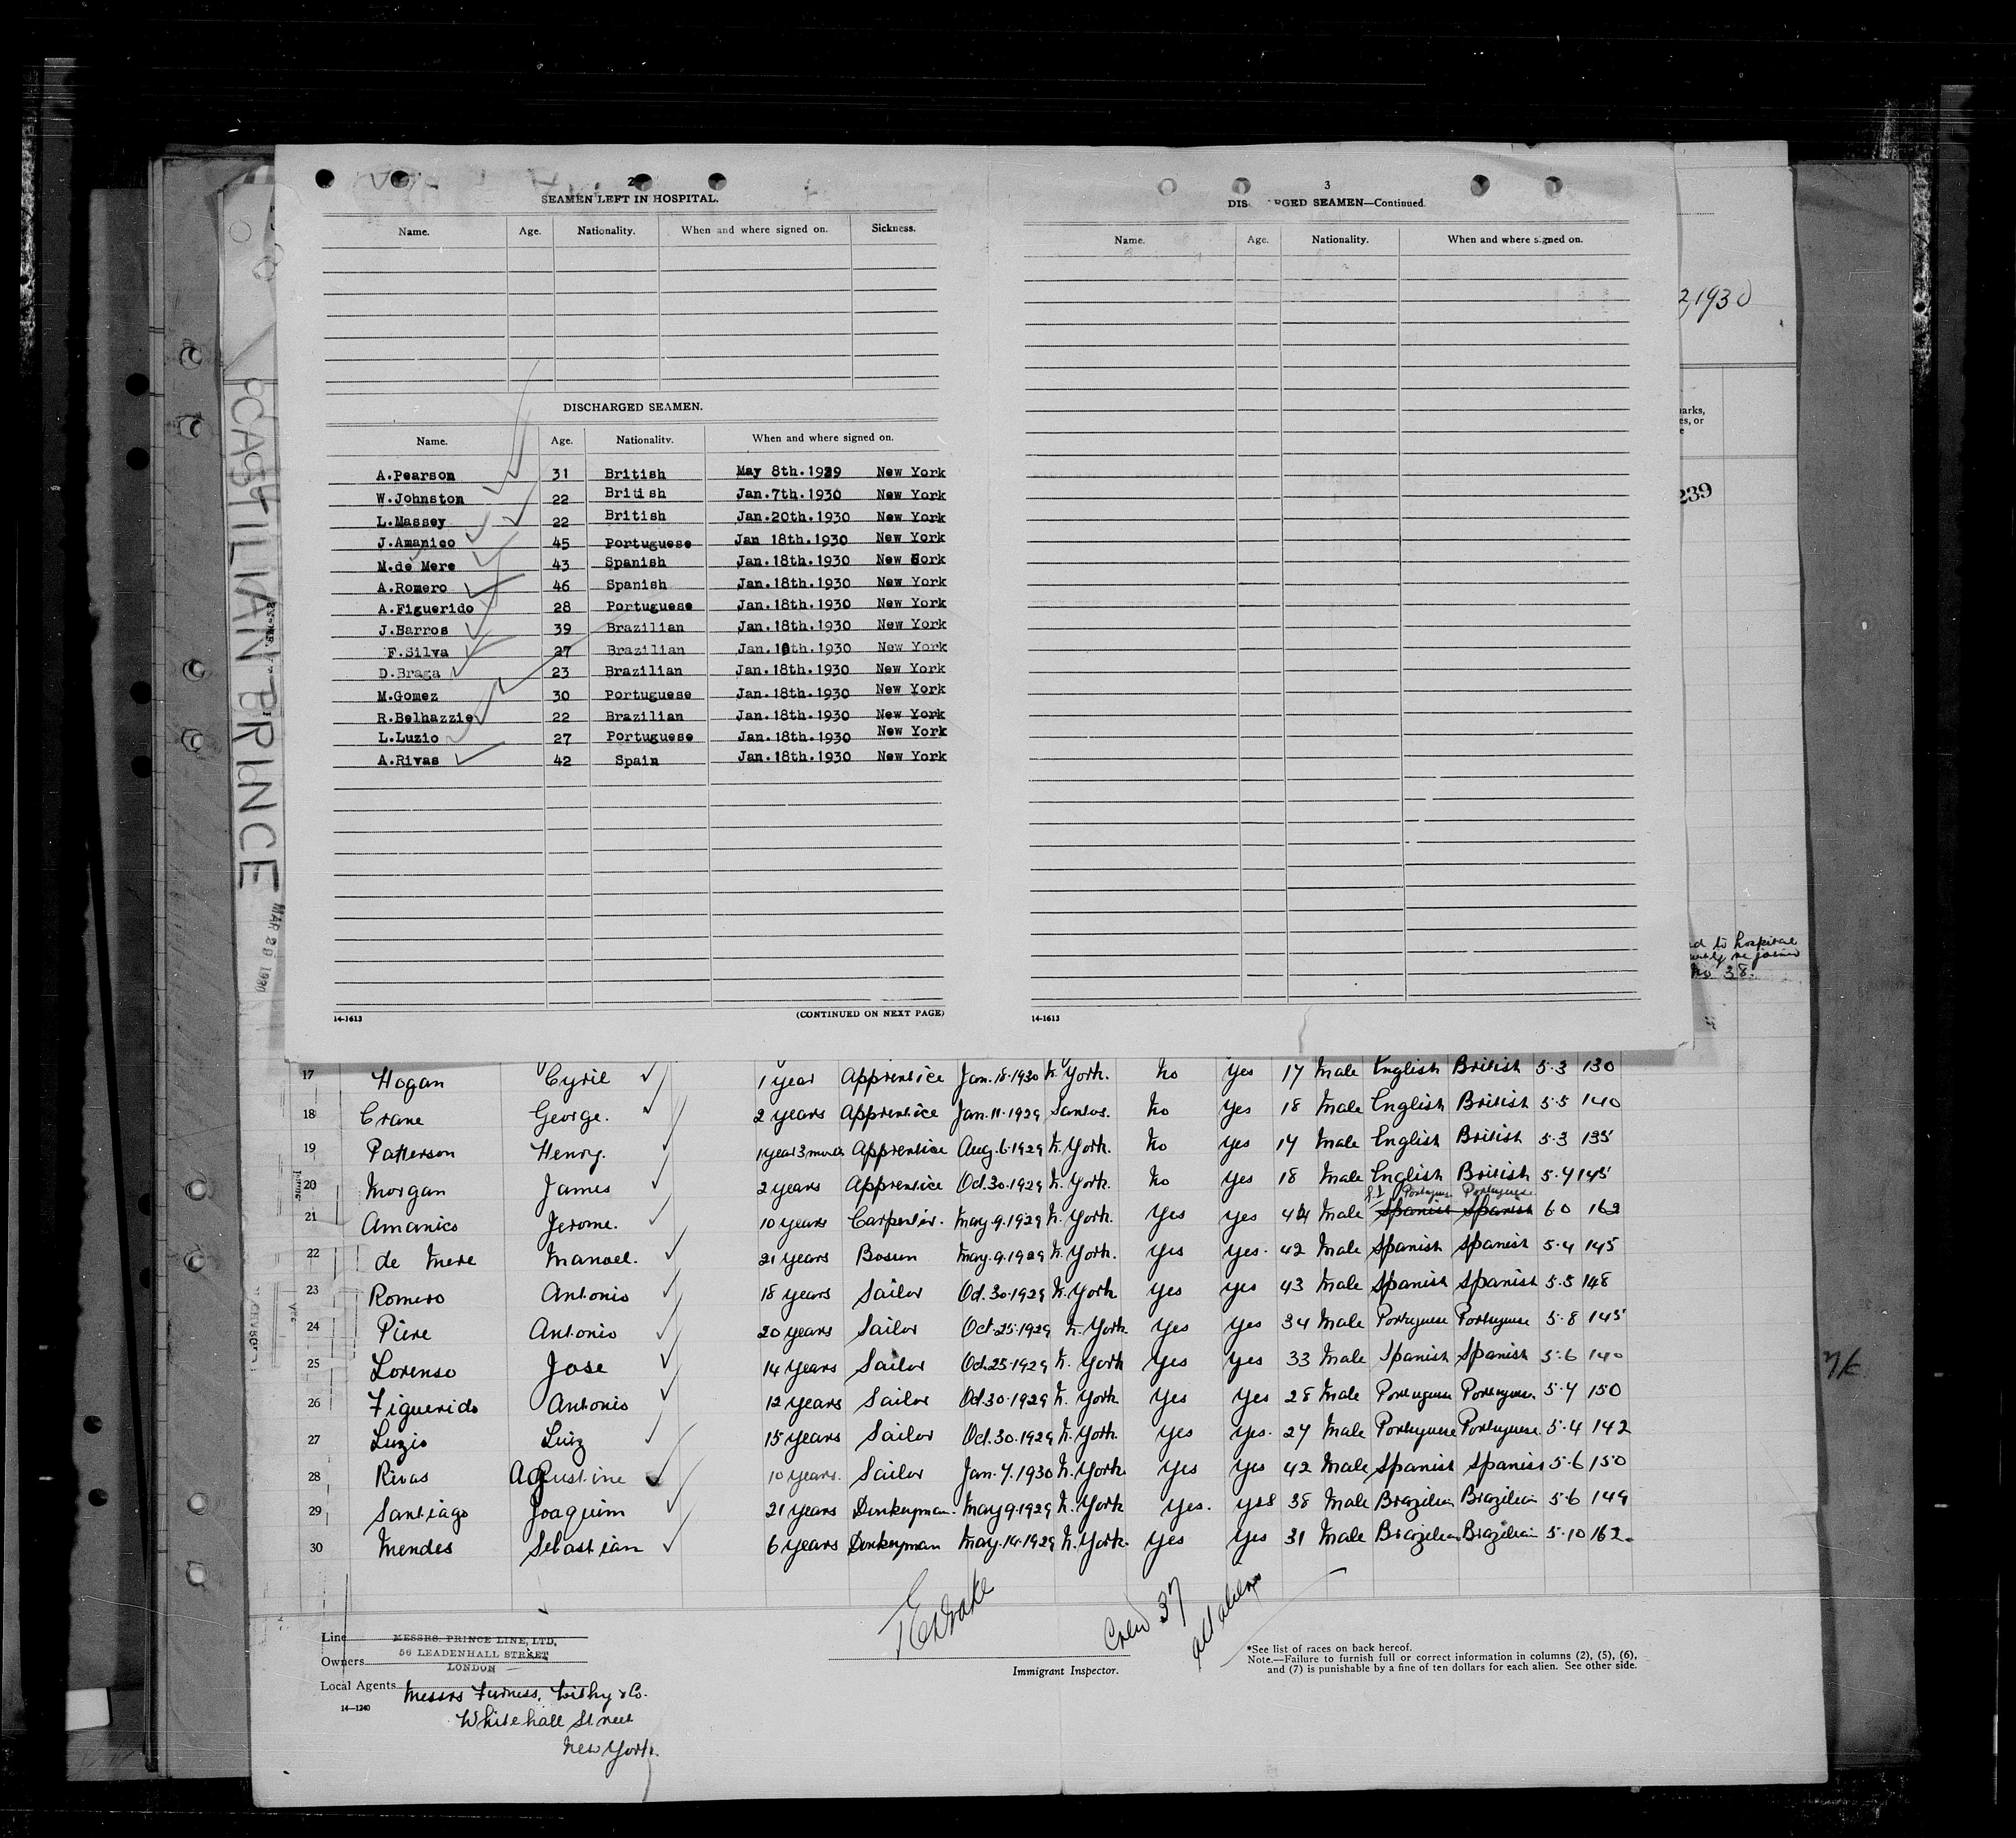 2
SEAMEN LEFT IN HOSPITAL.
Name. Age. Nationality. When and where signed on. Sickness.
DISCHARGED SEAMEN.
Name. Age. Nationality. When and where signed on.
A.Pearson 31 British May 8th.1929 New York
W.Johnston 22 British Jan.7th.1930 New York
L.Massey 22 British Jan.20th.1930 New York
J.Amanico 45 Portuguese Jan 18th.1930 New York
M.de Mere 43 Spanish Jan.18th.1930 New ork
A.Romero 46 Spanish Jan.18th.1930 New York
A.Figuerido 28 Portuguese Jan.18th.1930 New York
J.Barros 39 Brazilian Jan.18th.1930 New York
F.Silva 27 Brazilian Jan.18th.1930 New York
D.Braga 23 Brazilian Jan.18th.1930 New York
M.Gomez 30 Portuguese Jan.18th.1930 New York
R.Belhazzie 22 Brazilian Jan.18th.1930 New York
L.Luzio 27 Portuguese Jan.18th.1930 New York
A.Rivas 42 Spain Jan.18th.1930 New York
14-1613
(CONTINUED ON NEXT PAGE)
3
DIS RGED SEAMEN—Continued.
Name. Age. Nationality. When and where signed on.
14-1613
2, 1930
arks,
es, or
e
239
d to hospital
re joined
No 38.
CASTILIAN PRINCE
MAR 28 1930
17 Hogan Cyril 1 year Apprentice Jan.18.1930 N. York. No Yes 17 Male English British 5.3 130
18 Crane George. 2 years Apprentice Jan.11.1929 Santos. No Yes 18 Male English British 5.5 140
19 Patterson Henry. 1 year 3 months Apprentice Aug.6.1929 N. York. No Yes 17 Male English British 5.3 135
20 Morgan James 2 years Apprentice Oct.30.1929 N. York. No Yes 18 Male English British 5.4 145
Portuguese Portuguese
21 Amanico Jerome. 10 years Carpenter. May.9.1929 N. York. Yes Yes 44 Male Spanish Spanish 6.0 162
22 de Mere Manoel. 21 years Bosun May.9.1929 N. York. Yes Yes. 42 Male Spanish Spanish 5.4 145
23 Romero Antonio 18 years Sailor Oct.30.1929 N. York Yes Yes 43 Male Spanish Spanish 5.5 148
24 Piere Antonio 20 years Sailor Oct.25.1929 N. York. Yes Yes 34 Male Portuguese Portuguese 5.8 145
25 Lorenso Jose 14 years Sailor Oct.25.1929 N. York Yes Yes 33 Male Spanish Spanish 5.6 140
26 Figuerido Antonio 12 years Sailor Oct.30.1929 N. York Yes Yes 28 Male Portuguese Portuguese. 5.7 150
27 Luzio Luiz 15 years Sailor Oct.30.1929 N. York Yes Yes. 27 Male Portuguese Portuguese 5.4 142
28 Rivas Agustine 10 years. Sailor Jan.7.1930 N. York Yes Yes 42 Male Spanish Spanish 5.6 150
29 Santiago Joaquim 21 years Donkeyman. May 9.1929 N. York Yes. Yes 38 Male Brazilian Brazilian 5.6 149
30 Mendes Sebastian 6 years Donkeyman May.14.1929 N. York. Yes Yes 31 Male Brazilian Brazilian 5.10 162.
Crew 37
all aliens
Line MESSRS. PRINCE LINE, LTD.
Owners 56 LEADENHALL STREET
LONDON
Local Agents Messrs Furness, Withy & Co.
Whitehall Street
New York.
14-1240
Immigrant Inspector.
*See list of races on back hereof.
Note.—Failure to furnish full or correct information in columns (2), (5), (6),
and (7) is punishable by a fine of ten dollars for each alien. See other side.